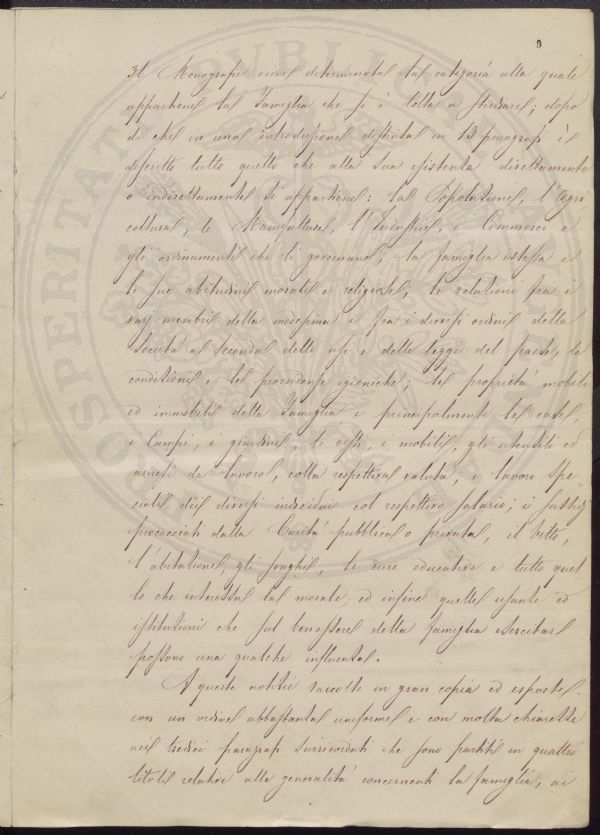 9
36 Monografie viene determinata la categoria alla quale
appartiene la famiglia che si è tolta a studiare; dopo
di che in una introduzione distinta in 13 paragrafi è
descritto tutto quello che alla sua esistenza direttamente
o indirettamente si appartiene: la Popolazione, l'Agri
coltura, le Manifatture, l'Industrie, i Commerci e
gli ordinamenti che li governano; la famiglia istessa e
le sue abitudini morali e religiose; le relazioni fra i
varj membri della medesima e fra i diversi ordini della
Società a seconda delli usi e delle leggi del paese, le
condizioni e le providenze igieniche; le proprietà mobili
ed immobili della Famiglia e principalmente le case,
i Campi, i giardini, le vesti, i mobili, gli utensili ed
arnesi da lavoro, colla respettiva valuta; i lavori spe
ciali dei diversi individui col respettivo salario; i sussidj
procacciati dalla Carità pubblica o privata, il vitto,
l'abitazione, gli svaghi, le cure educative e tutto quel
lo che interessa la morale, ed infine quelle usanze ed
istituzioni che sul benessere della famiglia esercitare
possono una qualche influenza.
A queste notizie raccolte in gran copia ed esposte
con un ordine abbastanza uniforme e con molta chiarezza
nei tredici paragrafi surricordati che sono partiti in quattro
titoli relativi alle generalità concernenti la famiglia, ai
OSPERITAT PUBLIC